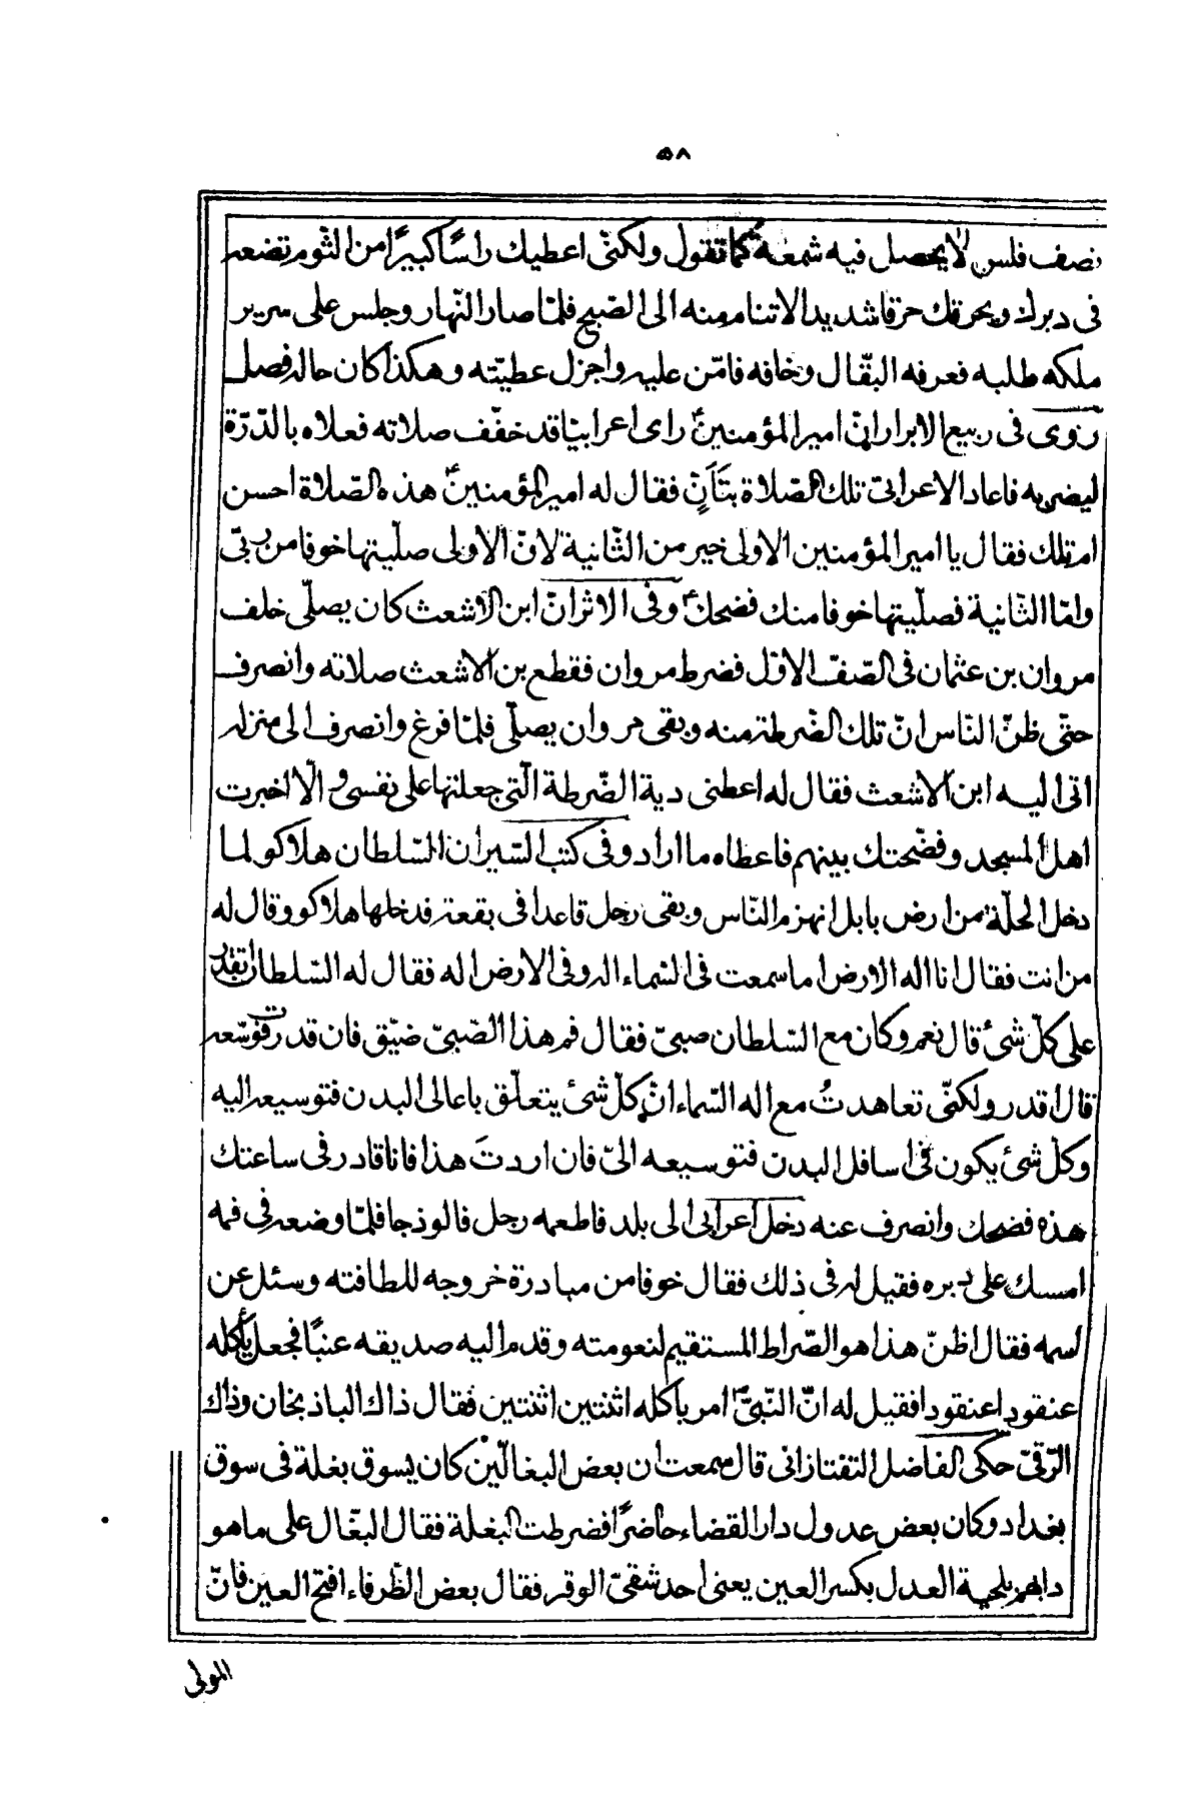 ٥٨
نصف فلس لا يحصل فيه شمعة كما تقول ولكنّى اعطيك راسًا كبيرًا من الثّوم تضعه
فى دبرك ويحرقك حرقا شديدا لاتنام منه الى الصّبح فلمّا صار النّهار وجلس على سرير
ملكه طلبه فعرفه البقّال وخافه فامّن عليه واجزل عطيّته وهكذا كان حاله فصل
روى فى ربيع الابرار انّ امير المؤمنينؑ راى اعرابيّا قد خفّف صلاته فعلاه بالدّرّة
ليضربه فاعاد الاعرابىّ تلك الصّلاة بتَأَنٍ فقال له امير المؤمنينؑ هذه الصّلاة احسن
ام تلك فقال يا امير المؤمنين الاولى خير من الثّانية لانّ الاولى صلّيتها خوفا من ربّى
وامّا الثّانية فصلّيتها خوفا منك فضحكؑ وفى الاثر انّ ابن الاشعث كان يصلّى خلف
مروان بن عثمان فى الصّفّ الاوّل فضرط مروان فقطع بن الاشعث صلاته وانصرف
حتّى ظنّ النّاس انّ تلك الضّرطة منه وبقى مروان يصلّى فلمّا فرغ وانصرف الى منزله
اتى اليه ابن الاشعث فقال له اعطنى دية الضّرطة الّتى جعلتها على نفسى و الّا اخبرت
اهل المسجد وفضّحتك بينهم فاعطاه ما اراد وفى كتب السّير ان السّلطان هلاكو لما
دخل الحلّة من ارض بابل انهزم النّاس وبقى رجل قاعدا فى بقعة فدخلها هلاكو وقال له
من انت فقال انا اله الارض اما سمعت فى السّماء اله وفى الارض اله فقال له السّلطان اتقدر
على كلّ شئ قال نعم وكان مع السّلطان صبىّ فقال فم هذا الصّبىّ ضيّق فان قدرت فوسّعه
قال اقدر ولكنّى تعاهدتُ مع اله السّماء انّ كلّ شئ يتعلّق باعالى البدن فتوسيعه اليه
وكلّ شئ يكون فى اسافل البدن فتوسيعه الىّ فان اردتَ هذا فانا قادر فى ساعتك
هذه فضحك وانصرف عنه دخل اعرابى الى بلد فاطعمه رجل فالوذجا فلمّا وضعه فى فمه
امسك على دبره فقيل له فى ذلك فقال خوفا من مبادرة خروجه للطافته وسئل عن
اسمه فقال اظنّ هذا هو الصّراط المستقيم لنعومته وقدم اليه صديقه عنبًا فجعل يأكله
عنقودا عنقودا فقيل له انّ النّبىّؐ امر باكله اثنتين اثنتين فقال ذاك الباذنجان وذاك
الرّقىّ حكى الفاضل التفتازانى قال سمعت ان بعض البغّالين كان يسوق بغلة فى سوق
بغداد وكان بعض عدول دار القضاء حاضرًا فضرطت البغلة فقال البغّال على ما هو
دابهم بلحية العدل بكسر العين يعنى احد شقىّ الوقر فقال بعض الظّرفاء افتح العين فانّ
المولى